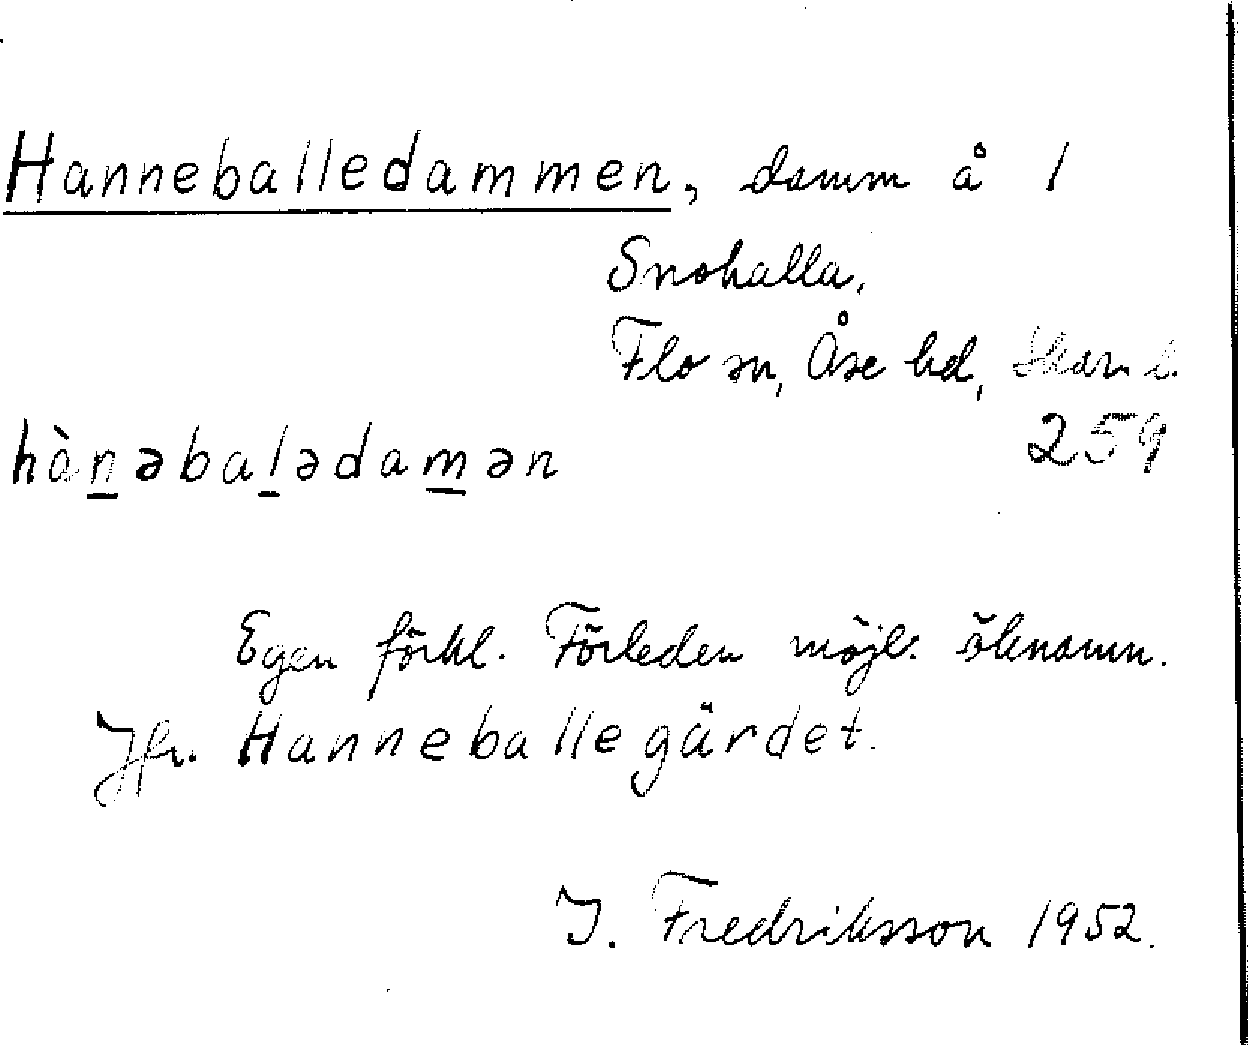 Hanneballedammen, damm å 1
Snohalla,
Flo sn, Åse hd, Skar. l.
259
hànəbalədamən
Egen förkl. Förleden möjl. öknamn.
Jfr. Hanneballegärdet.
I. Fredriksson 1952.